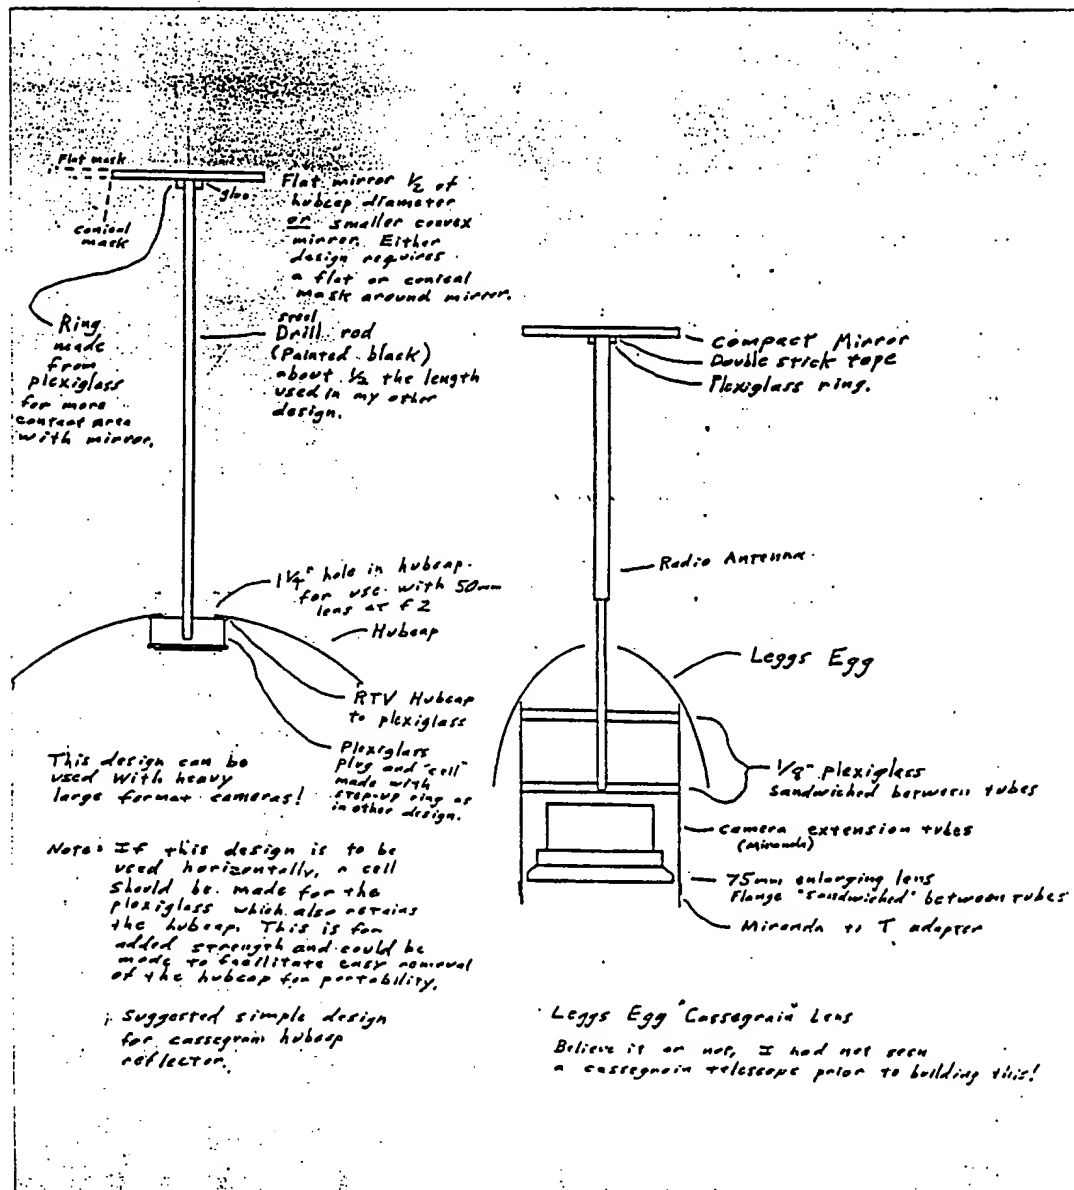 Flat mask
glue
conical
mask
Flat mirror 1/2 of
hubcap diameter
or smaller convex
mirror. Either
design requires
a flat or conical
mask around mirror.
Ring
made
from
plexiglass
for more
contact area
with mirror.
steel
Drill rod
(Painted black)
about 1/2 the length
used in my other
design.
1 1/4" hole in hubcap
for use with 50mm
lens at f2
Hubcap
RTV Hubcap
to plexiglass
Plexiglass
plug and "cell"
made with
step-up ring as
in other design.
This design can be
used with heavy
large format cameras!
Note: If this design is to be
used horizontally, a cell
should be made for the
plexiglass which also retains
the hubcap. This is for
added strength and could be
made to facilitate easy removal
of the hubcap for portability.
Suggested simple design
for cassegrain hubcap
reflector.
compact Mirror
Double stick tape
Plexiglass ring.
Radio Antenna
Leggs Egg
1/8" plexiglass
Sandwiched between tubes
camera extension tubes
(Miranda)
75mm enlarging lens
Flange "sandwiched" between tubes
Miranda to T adapter
Leggs Egg "Cassegrain" Lens
Believe it or not, I had not seen
a cassegrain telescope prior to building this!